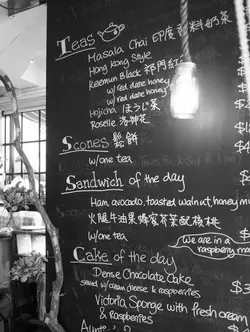 Teas
Masala Chai 印度香料奶茶
Hong Kong Style
Keemun Black 祁門紅
w/red date honey
w/red date honey
Hojicha ほうじ茶
Roselle 洛神花
Scones 鬆餅
w/one tea
Sandwich of the day
Ham, avocado, toasted walnut, honey mu
火腿牛油果蜂蜜芥茉配核桃
w/one tea
we are in a
raspberry ma
Cake of the day
Dense Chocolate Cake
served w/cream cheese & raspberries
Victoria Sponge with fresh cream
& raspberries